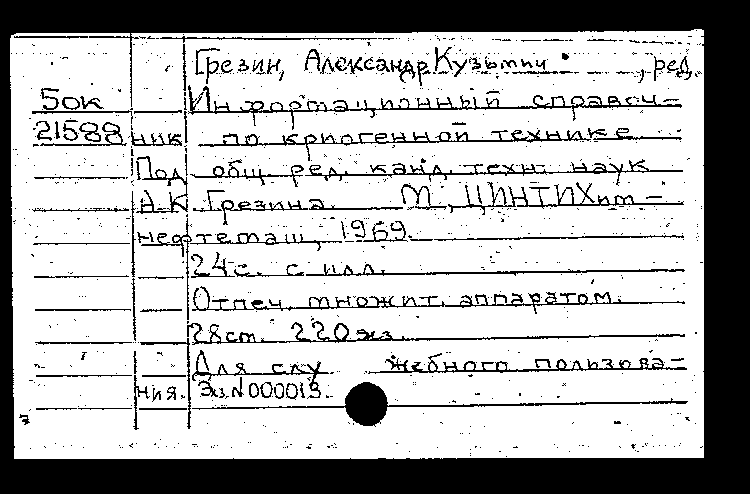 Грезин, Александр Кузьмич, ред.
5ок Информационный справоч-
21588 ник по криогенной технике
Под общ. ред. канд. техн. наук
А.К. Грезина. М., ЦИНТИХим-
нефтемаш, 1969.
24с. с илл.
Отпеч. множит. аппаратом.
28 cm. 220 экз.
Для слу жебного пользова-
ния. Экз. N 000013.